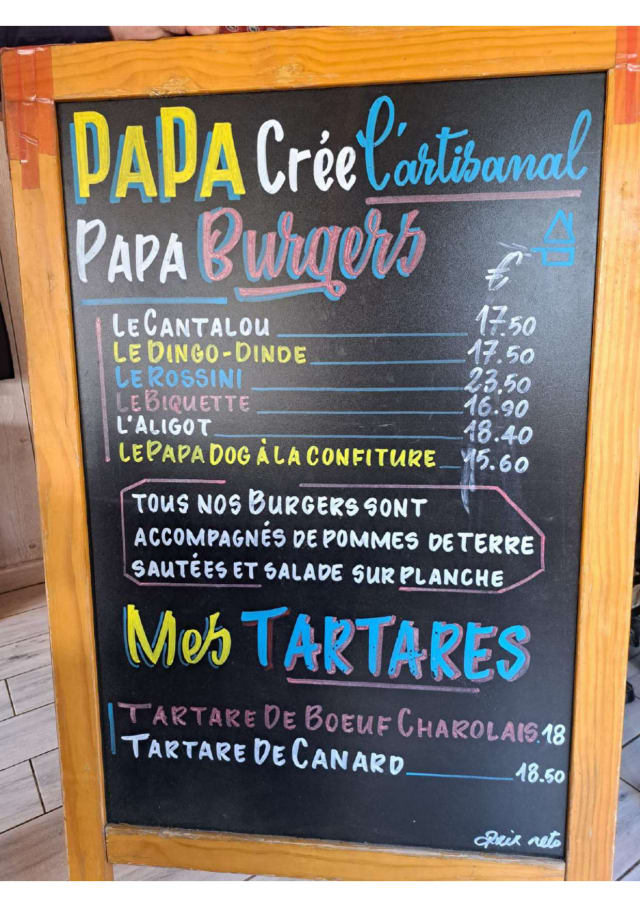 PAPA Crée l'artisanal
PAPA Burgers
€
LE CANTALOU 17.50
LE DINGO-DINDE 17.50
LE ROSSINI 23.50
LE BIQUETTE 16.90
L'ALIGOT 18.40
LE PAPA DOG À LA CONFITURE 15.60
TOUS NOS BURGERS SONT
ACCOMPAGNÉS DE POMMES DE TERRE
SAUTÉES ET SALADE SUR PLANCHE
Mes TARTARES
TARTARE DE BOEUF CHAROLAIS 18
TARTARE DE CANARD 18.50
Prix nets